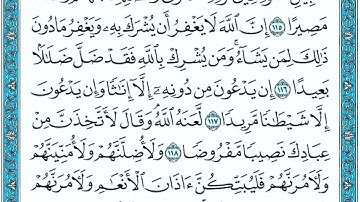 مَصِيرًا ١١٥ إِنَّ ٱللَّهَ لَا يَغْفِرُ أَن يُشْرَكَ بِهِۦ وَيَغْفِرُ مَا دُونَ
ذَٰلِكَ لِمَن يَشَآءُ ۚ وَمَن يُشْرِكْ بِٱللَّهِ فَقَدْ ضَلَّ ضَلَٰلًۢا
بَعِيدًا ١١٦ إِن يَدْعُونَ مِن دُونِهِۦٓ إِلَّآ إِنَٰثًا وَإِن يَدْعُونَ
إِلَّا شَيْطَٰنًا مَّرِيدًا ١١٧ لَّعَنَهُ ٱللَّهُ ۘ وَقَالَ لَأَتَّخِذَنَّ مِنْ
عِبَادِكَ نَصِيبًا مَّفْرُوضًا ١١٨ وَلَأُضِلَّنَّهُمْ وَلَأُمَنِّيَنَّهُمْ
وَلَءَامُرَنَّهُمْ فَلَيُبَتِّكُنَّ ءَاذَانَ ٱلْأَنْعَٰمِ وَلَءَامُرَنَّهُمْ